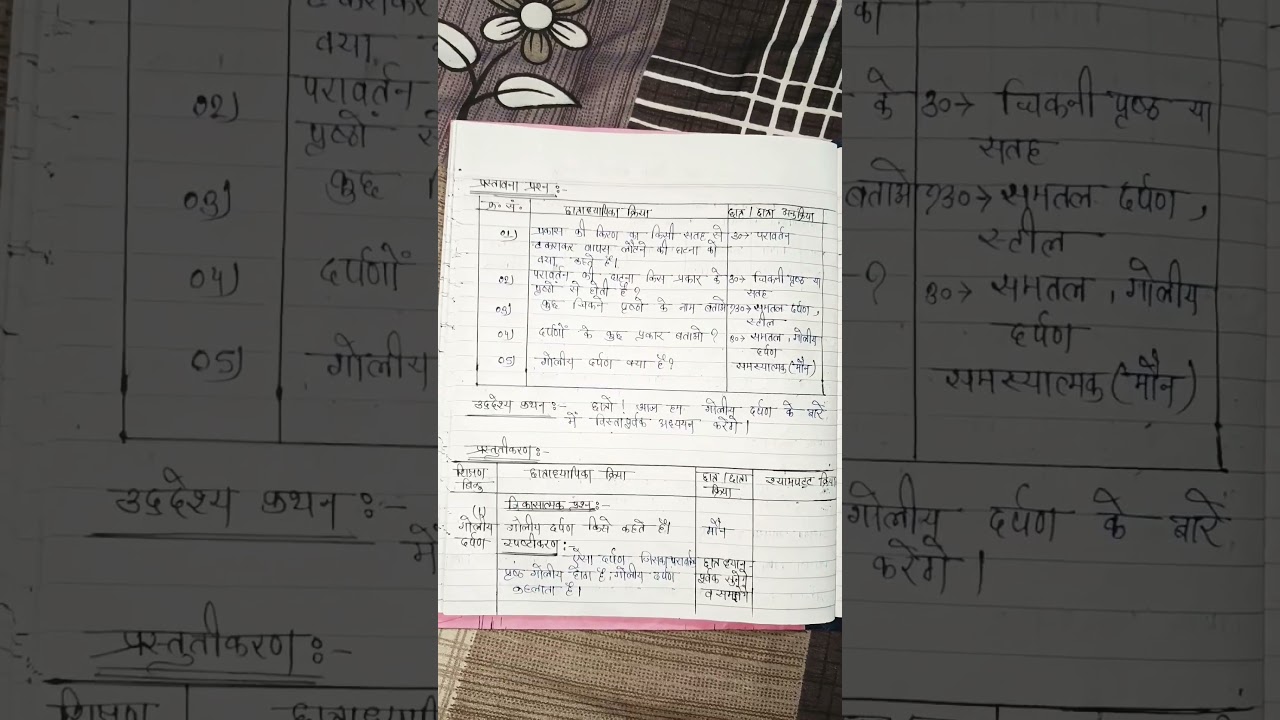 प्रस्तावना प्रश्न :-
क्र. सं. छात्राध्यापिका क्रिया छात्र / छात्रा अनुक्रिया
01) प्रकाश की किरण का किसी सतह से उ०→ परावर्तन
टकराकर वापस लौटने की घटना को
क्या कहते हैं।
02) परावर्तन की घटना किस प्रकार के उ०→ चिकनी पृष्ठ या
पृष्ठों से होती है ? सतह
03) कुछ चिकने पृष्ठों के नाम बताओ ? उ०→ समतल दर्पण,
स्टील
04) दर्पणों के कुछ प्रकार बताओ ? उ०→ समतल, गोलीय
दर्पण
05) गोलीय दर्पण क्या है ? समस्यात्मक (मौन)
उद्देश्य कथन :- छात्रों ! आज हम गोलीय दर्पण के बारें
में विस्तारपूर्वक अध्ययन करेंगे।
प्रस्तुतीकरण :-
शिक्षण छात्राध्यापिका क्रिया छात्र / छात्रा श्यामपट्ट क्रिया
बिन्दु क्रिया
विकासात्मक प्रश्न :-
(1)
गोलीय गोलीय दर्पण किसे कहते हैं। मौन
दर्पण स्पष्टीकरण :-
ऐसा दर्पण जिसका परावर्तक छात्र ध्यान
पृष्ठ गोलीय होता है, गोलीय दर्पण पूर्वक सुनेंगे
कहलाता है। व समझेंगे